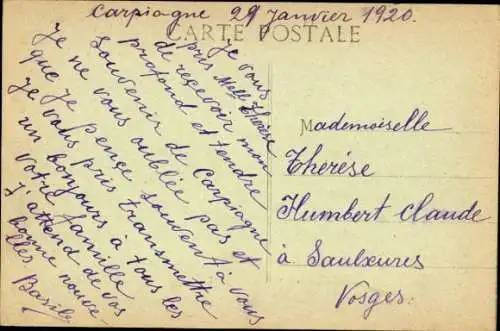 Carpiagne 29 Janvier 1920.
CARTE POSTALE
Je vous
pris Mell Therèse
de recevoir mon
profond et tendre
Souvenir de Carpiagne
Je ne vous oublée pas et
que je pence souvent à vous
Je vous pris transmettre
un bonjours à tous les
votre famille
J'attend de vos
bonne nouve
lles Basile
Mademoiselle
Therése
Humbert Claude
à Saulxures
Vosges.